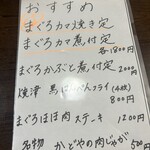 おすすめ
まぐろカマ焼き定
まぐろカマ煮付定
各1800円
まぐろかぶと煮付定 2000円
焼津 黒はんぺんフライ(4枚)
800円
まぐろほほ肉ステーキ
1200円
名物 かどやの肉じゃが
500円